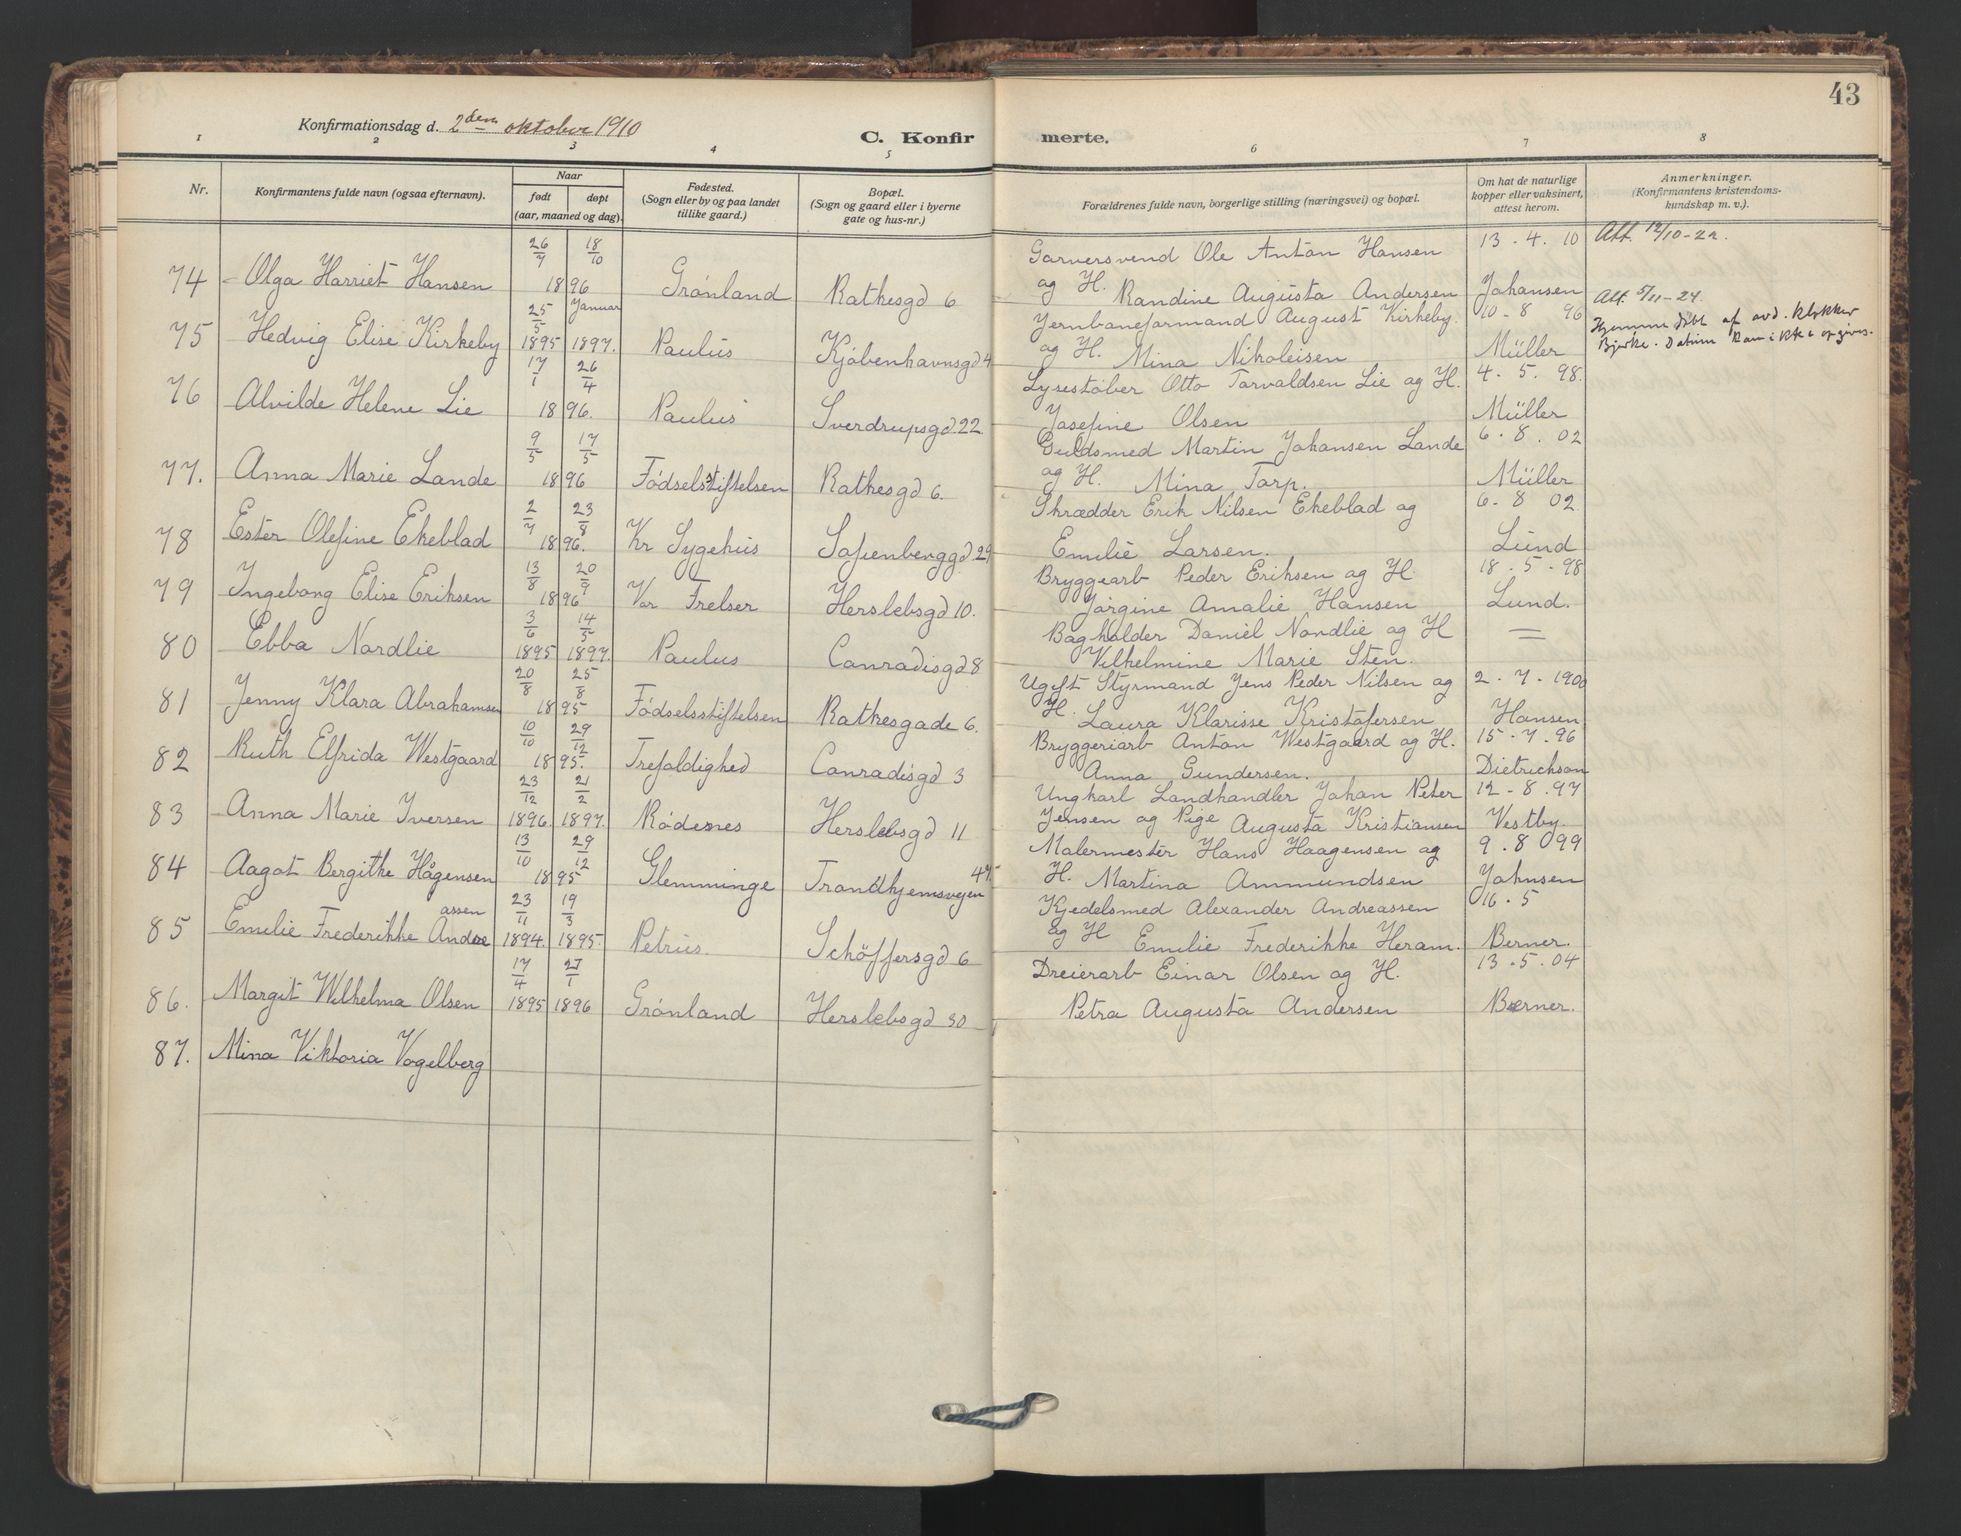 43
Konfirmationsdag d. 2den oktober 1910
C. Konfirmerte.
1 2 3 4 5 6 7 8
Nr.
Konfirmantens fulde navn (ogsaa efternavn).
Naar
født døpt
(aar, maaned og dag).
Fødested.
(Sogn eller by og paa landet
tillike gaard.)
Bopæl.
(Sogn og gaard eller i byerne
gate og hus-nr.)
Forældrenes fulde navn, borgerlige stilling (næringsvei) og bopæl.
Om hat de naturlige
kopper eller vaksinert,
attest herom.
Anmerkninger.
(Konfirmantens kristendoms-
kundskap m. v.).
26/7 18/10 Garversvend Ole Anton Hansen 13-4.10 Att. 12/10-22.
74 Olga Harriet Hansen 1896 Grønland Rathesgd 6 og H. Randine Augusta Andersen Johansen
25/5 Januar Jernbaneformand August Kirkeby. 10-8 96 Att. 5/11-24.
75 Hedvig Elise Kirkeby 1895 1897. Paulus Kjøbenhavnsgd 4 og H. Mina Nikoleisen Müller
Hjemme døbt af avd. klokker
Bjerke. Datum kan ikke opgives.
17/1 26/4 Lysestøber Otto Torvaldsen Lie og H. 4-5. 98.
76 Alvilde Helene Lie 1896. Paulus Sverdrupsgd 22 Josefine Olsen Müller
9/5 17/5 Guldsmed Martin Johansen Lande 6-8.02
77. Anna Marie Lande 1896 Fødselsstiftelsen Rathesgd 6. og H. Mina Torp. Müller
2/7 23/8 Skrædder Erik Nilsen Ekeblad og 6-8 02
78 Ester Olefine Ekeblad 1896. Kr Sygehus Sofienberggd 29 Emilie Larsen. Lund
13/8 20/9 Bryggearb Peder Eriksen og H. 18-5-98
79 Ingeborg Elise Eriksen 1896 Vor Frelser Herslebsgd 10. Jørgine Amalie Hansen Lund.
3/6 14/5 Bagholder Daniel Nordlie og H =
80 Ebba Nordlie 1895 1897. Paulus Conradisgd 8 Vilhelmine Marie Sten.
20/8 25/8 Ugift Styrmand Jens Peder Nilsen og 2-7-1900
81 Jenny Klara Abrahamsen 1895 Fødselsstiftelsen Rathesgade 6. H. Laura Klarisse Kristofersen Hansen
10/10 29/12 Bryggeriarb Anton Westgaard og H. 15-7-96
82 Ruth Elfrida Westgaard 1895. Trefoldighed Conradisgd 3 Anna Gundersen. Dietrichson
23/12 21/2 Ungkarl Landhandler Johan Peter 12-8.97
83 Anna Marie Iversen 1896. 1897. Rødenes Herslebsgd 11 Jensen og Pige Augusta Kristiansen Vestby.
13/10 29/12 Malermester Hans Haagensen og 9.8 99
84 Aagot Bergithe Hågensen 1895 Glemminge Trondhjemsveyen 47. H. Martina Ammundsen Johnsen
23/11 19/3 Kjedelsmed Alexander Andreassen 16.5
85 Emilie Frederikke Andreassen 1894. 1895. Petrus. Schøffersgd 6 og H Emilie Frederikke Heram. Berner.
17/4 27/1 Dreierarb Einar Olsen og H. 13.5.04
86. Margit Wilhelma Olsen 1895 1896 Grønland Herslebsgd 30 Petra Augusta Andersen Berner.
87. Mina Viktoria Vogelberg